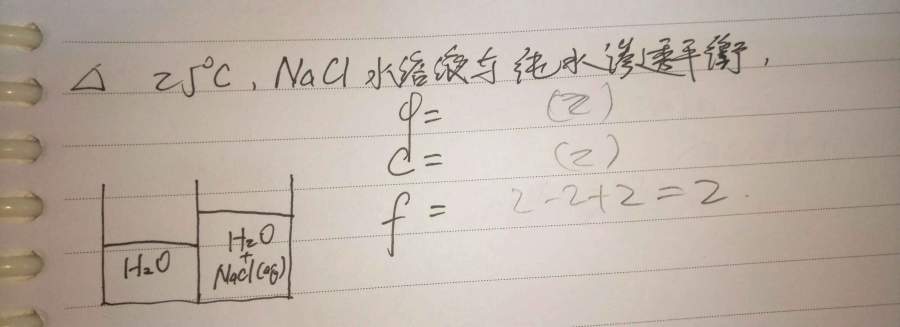 △ 25°C, NaCl水溶液与纯水渗透平衡,
φ= (2)
C= (2)
f= 2-2+2=2.
H₂O
H₂O
+
NaCl(aq)